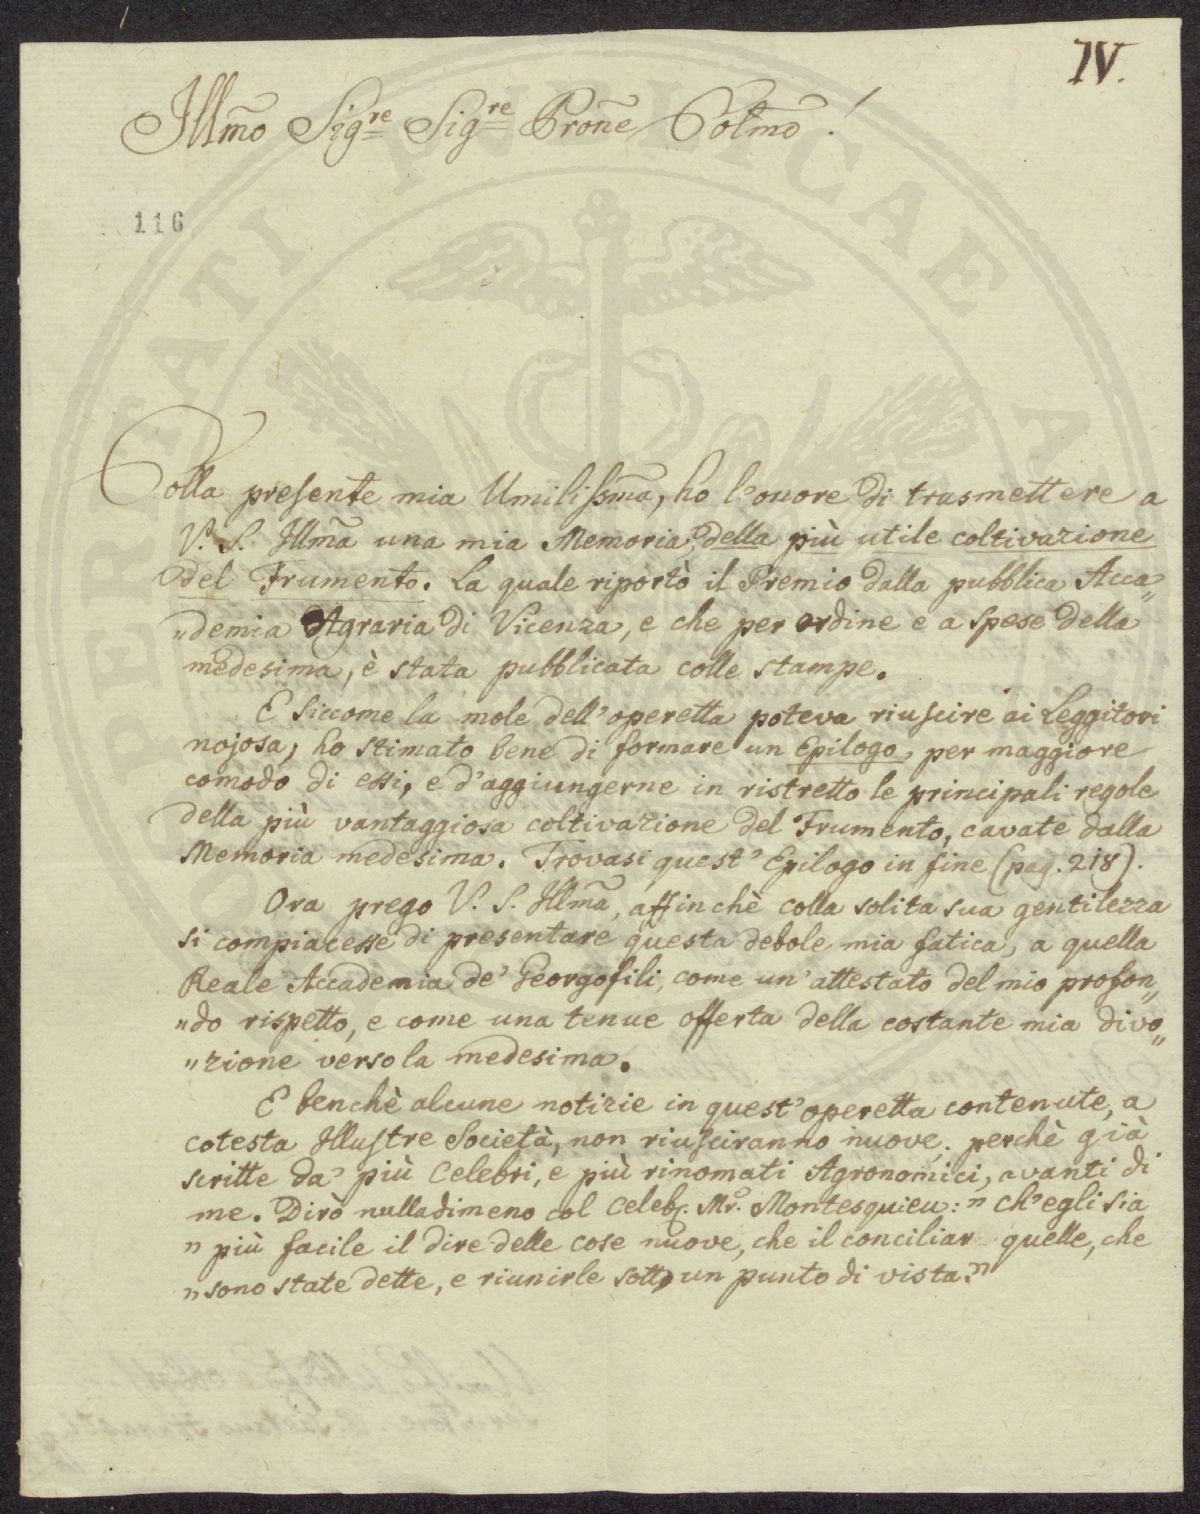 IV.
Illmo Sigre Sigre Prone Colmo!
116
Colla presente mia Umilissma, ho l'onore di trasmettere a
V. S. Illma una mia Memoria, della più utile coltivazione
del Frumento. La quale riportò il Premio dalla pubblica Acca„
„demia Agraria di Vicenza, e che per ordine e a spese della
medesima, è stata pubblicata colle stampe.
E siccome la mole dell'operetta poteva riuscire ai Leggitori
nojosa, ho stimato bene di formare un Epilogo, per maggiore
comodo di essi, e d'aggiungerne in ristretto le principali regole
della più vantaggiosa coltivazione del Frumento, cavate dalla
Memoria medesima. Trovasi quest'Epilogo in fine (pag. 218).
Ora prego V. S. Illma, affinchè colla solita sua gentilezza
si compiacesse di presentare questa debole mia fatica, a quella
Reale Accademia de' Georgofili, come un'attestato del mio profon„
„do rispetto, e come una tenue offerta della costante mia divo„
„zione verso la medesima.
E benchè alcune notizie in quest'operetta contenute, a
cotesta Illustre Società, non riusciranno nuove; perchè già
scritte da' più celebri, e più rinomati Agronomici, avanti di
me. Dirò nulladimeno col celeb. Mr. Montesquieu: „ ch'egli sia
„ più facile il dire delle cose nuove, che il conciliar quelle, che
„ sono state dette, e riunirle sotto un punto di vista.„
PUBLICAE